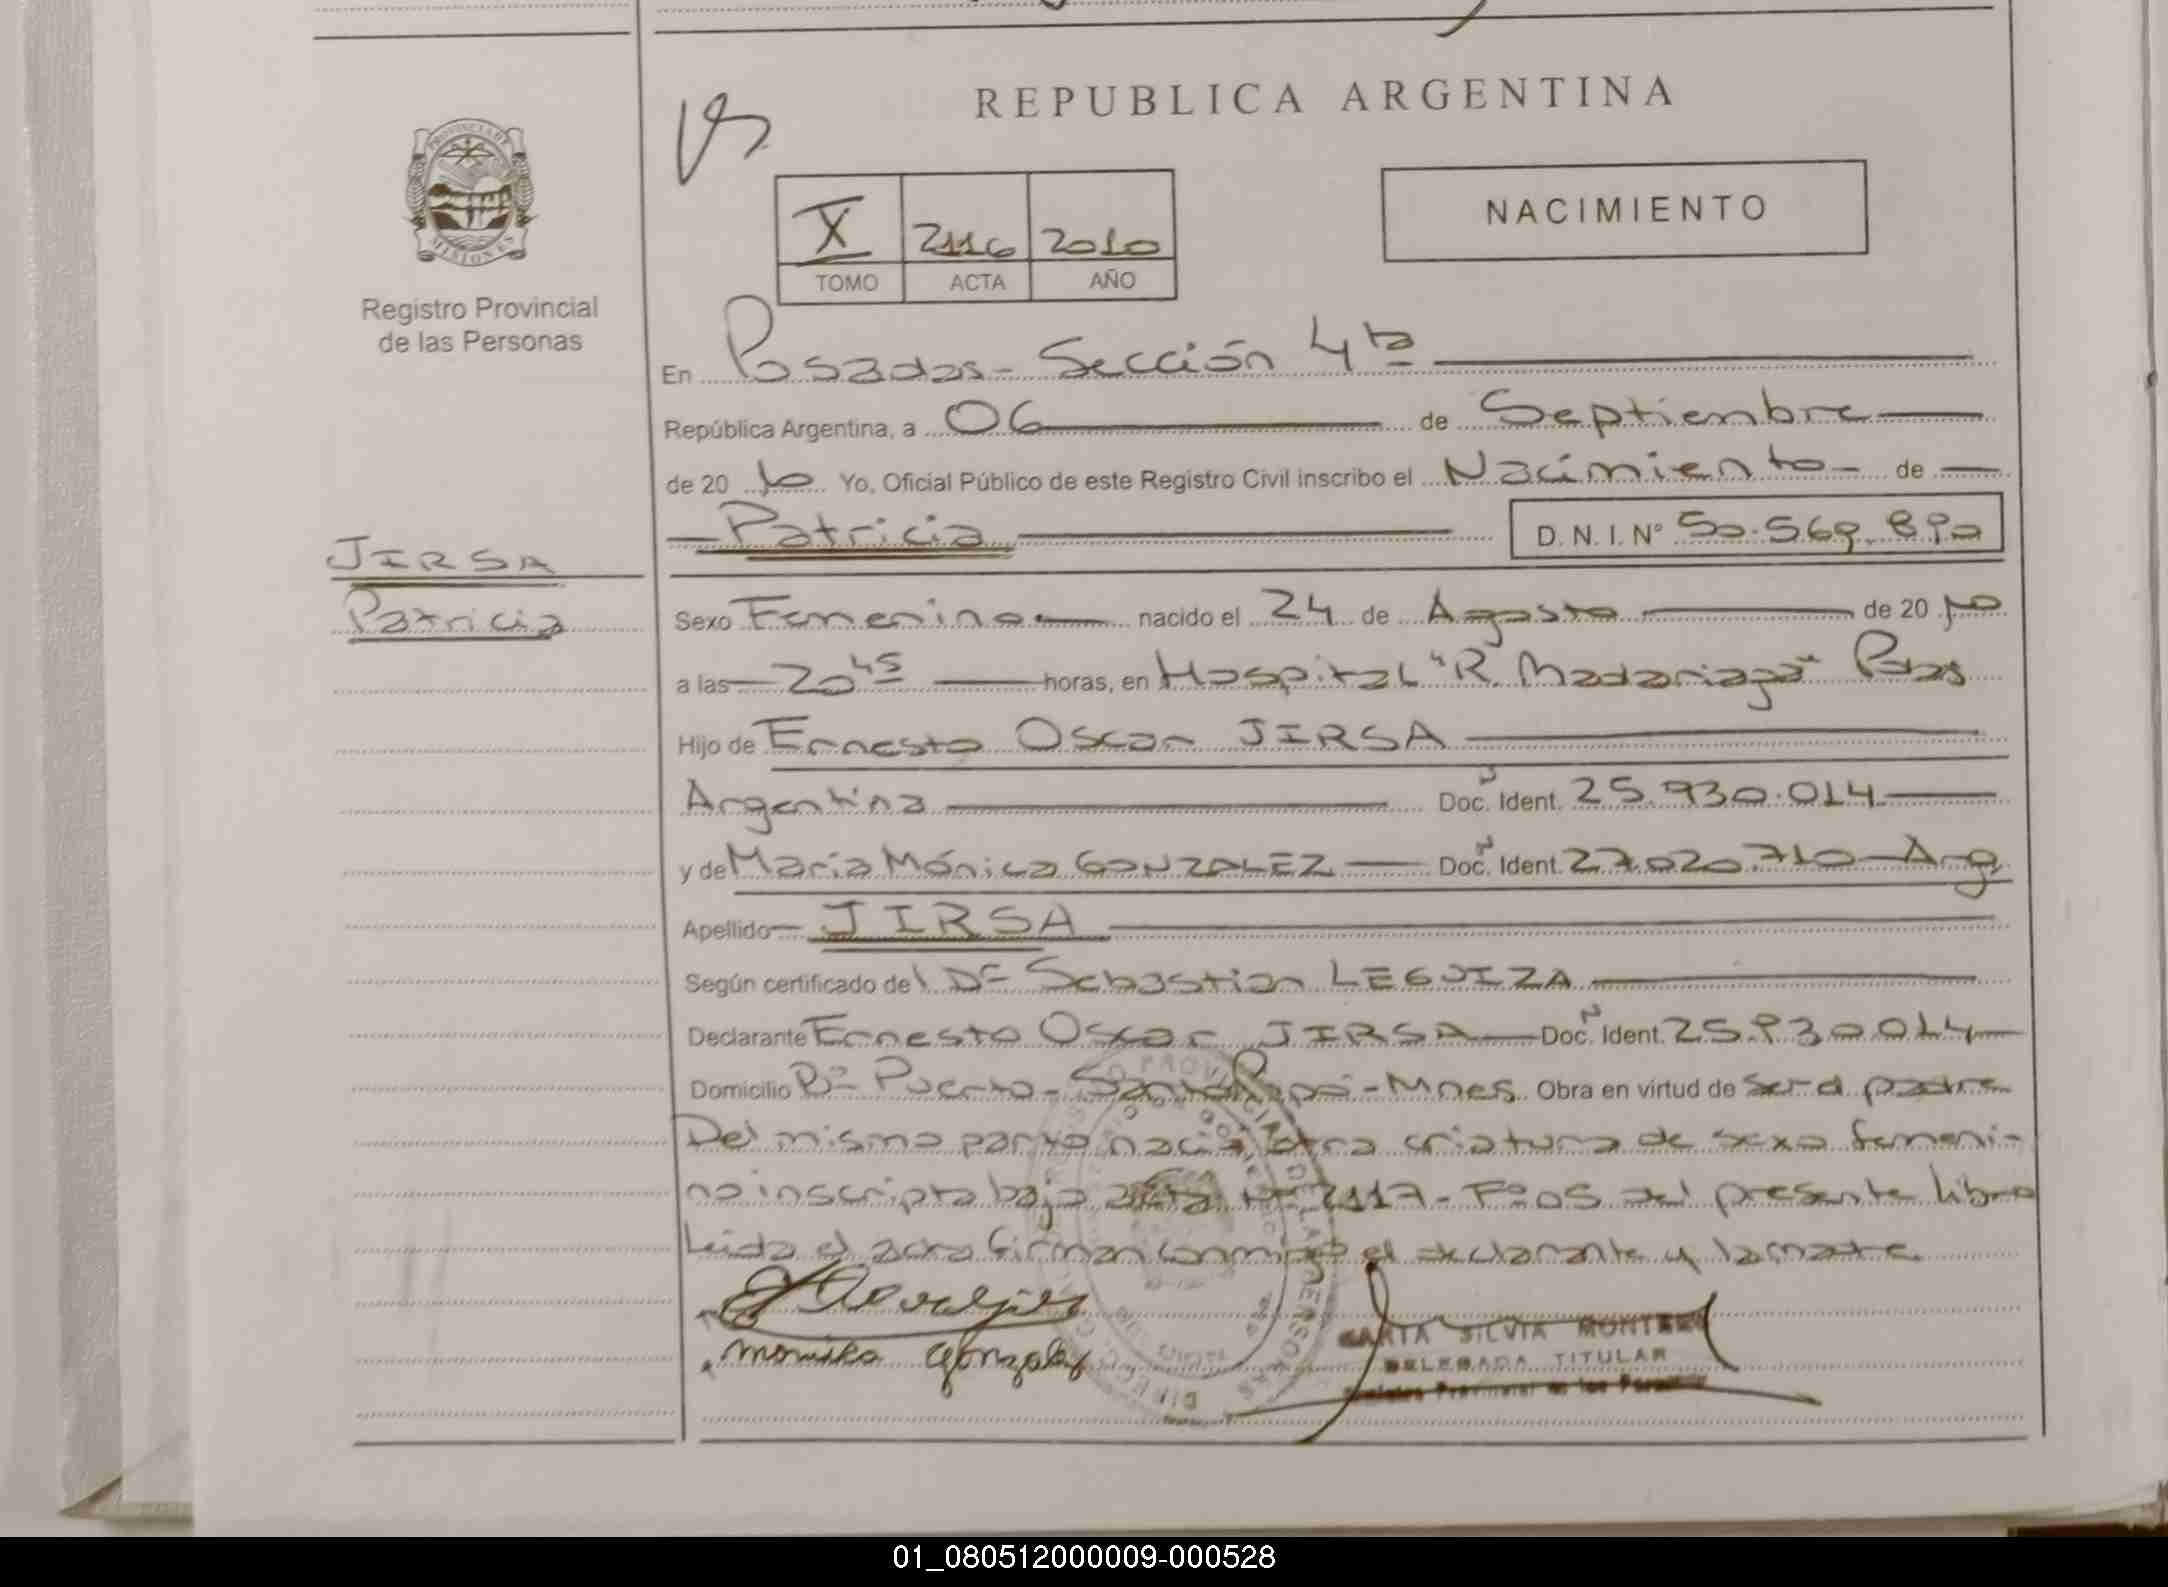 REPUBLICA ARGENTINA
PROVINCIA DE
MISIONES
Registro Provincial
de las Personas
NACIMIENTO
X 2116 2010
TOMO ACTA AÑO
En Posadas - Sección 4ta
República Argentina, a 06 de Septiembre
de 20 10 Yo, Oficial Público de este Registro Civil inscribo el Nacimiento - de
Patricia D. N. I. Nº 50.569.890
JIRSA
Patricia
Sexo Femenino nacido el 24 de Agosto de 20 10
a las 20 45 horas, en Hospital "R. Madariaga" Pdas
Hijo de Ernesto Oscar JIRSA
Argentina Doc. N Ident. 25.930.014
y de María Mónica GONZALEZ Doc. N Ident. 27.020.710 - Arg.
Apellido JIRSA
Según certificado del Dr Sebastian LEGUIZA
Declarante Ernesto Oscar JIRSA Doc. N Ident. 25.930.014
Domicilio Bº Puerto - Santa - Mnes. Obra en virtud de ser el padre
Del mismo parto nació otra criatura de sexo femeni-
no inscripta bajo acta Nº 2117 - Fº 05 del presente libro
Leida el acta firman conmigo el declarante y la madre
monika Gonzalez
SILVIA
DELEGADA TITULAR
01_080512000009-000528